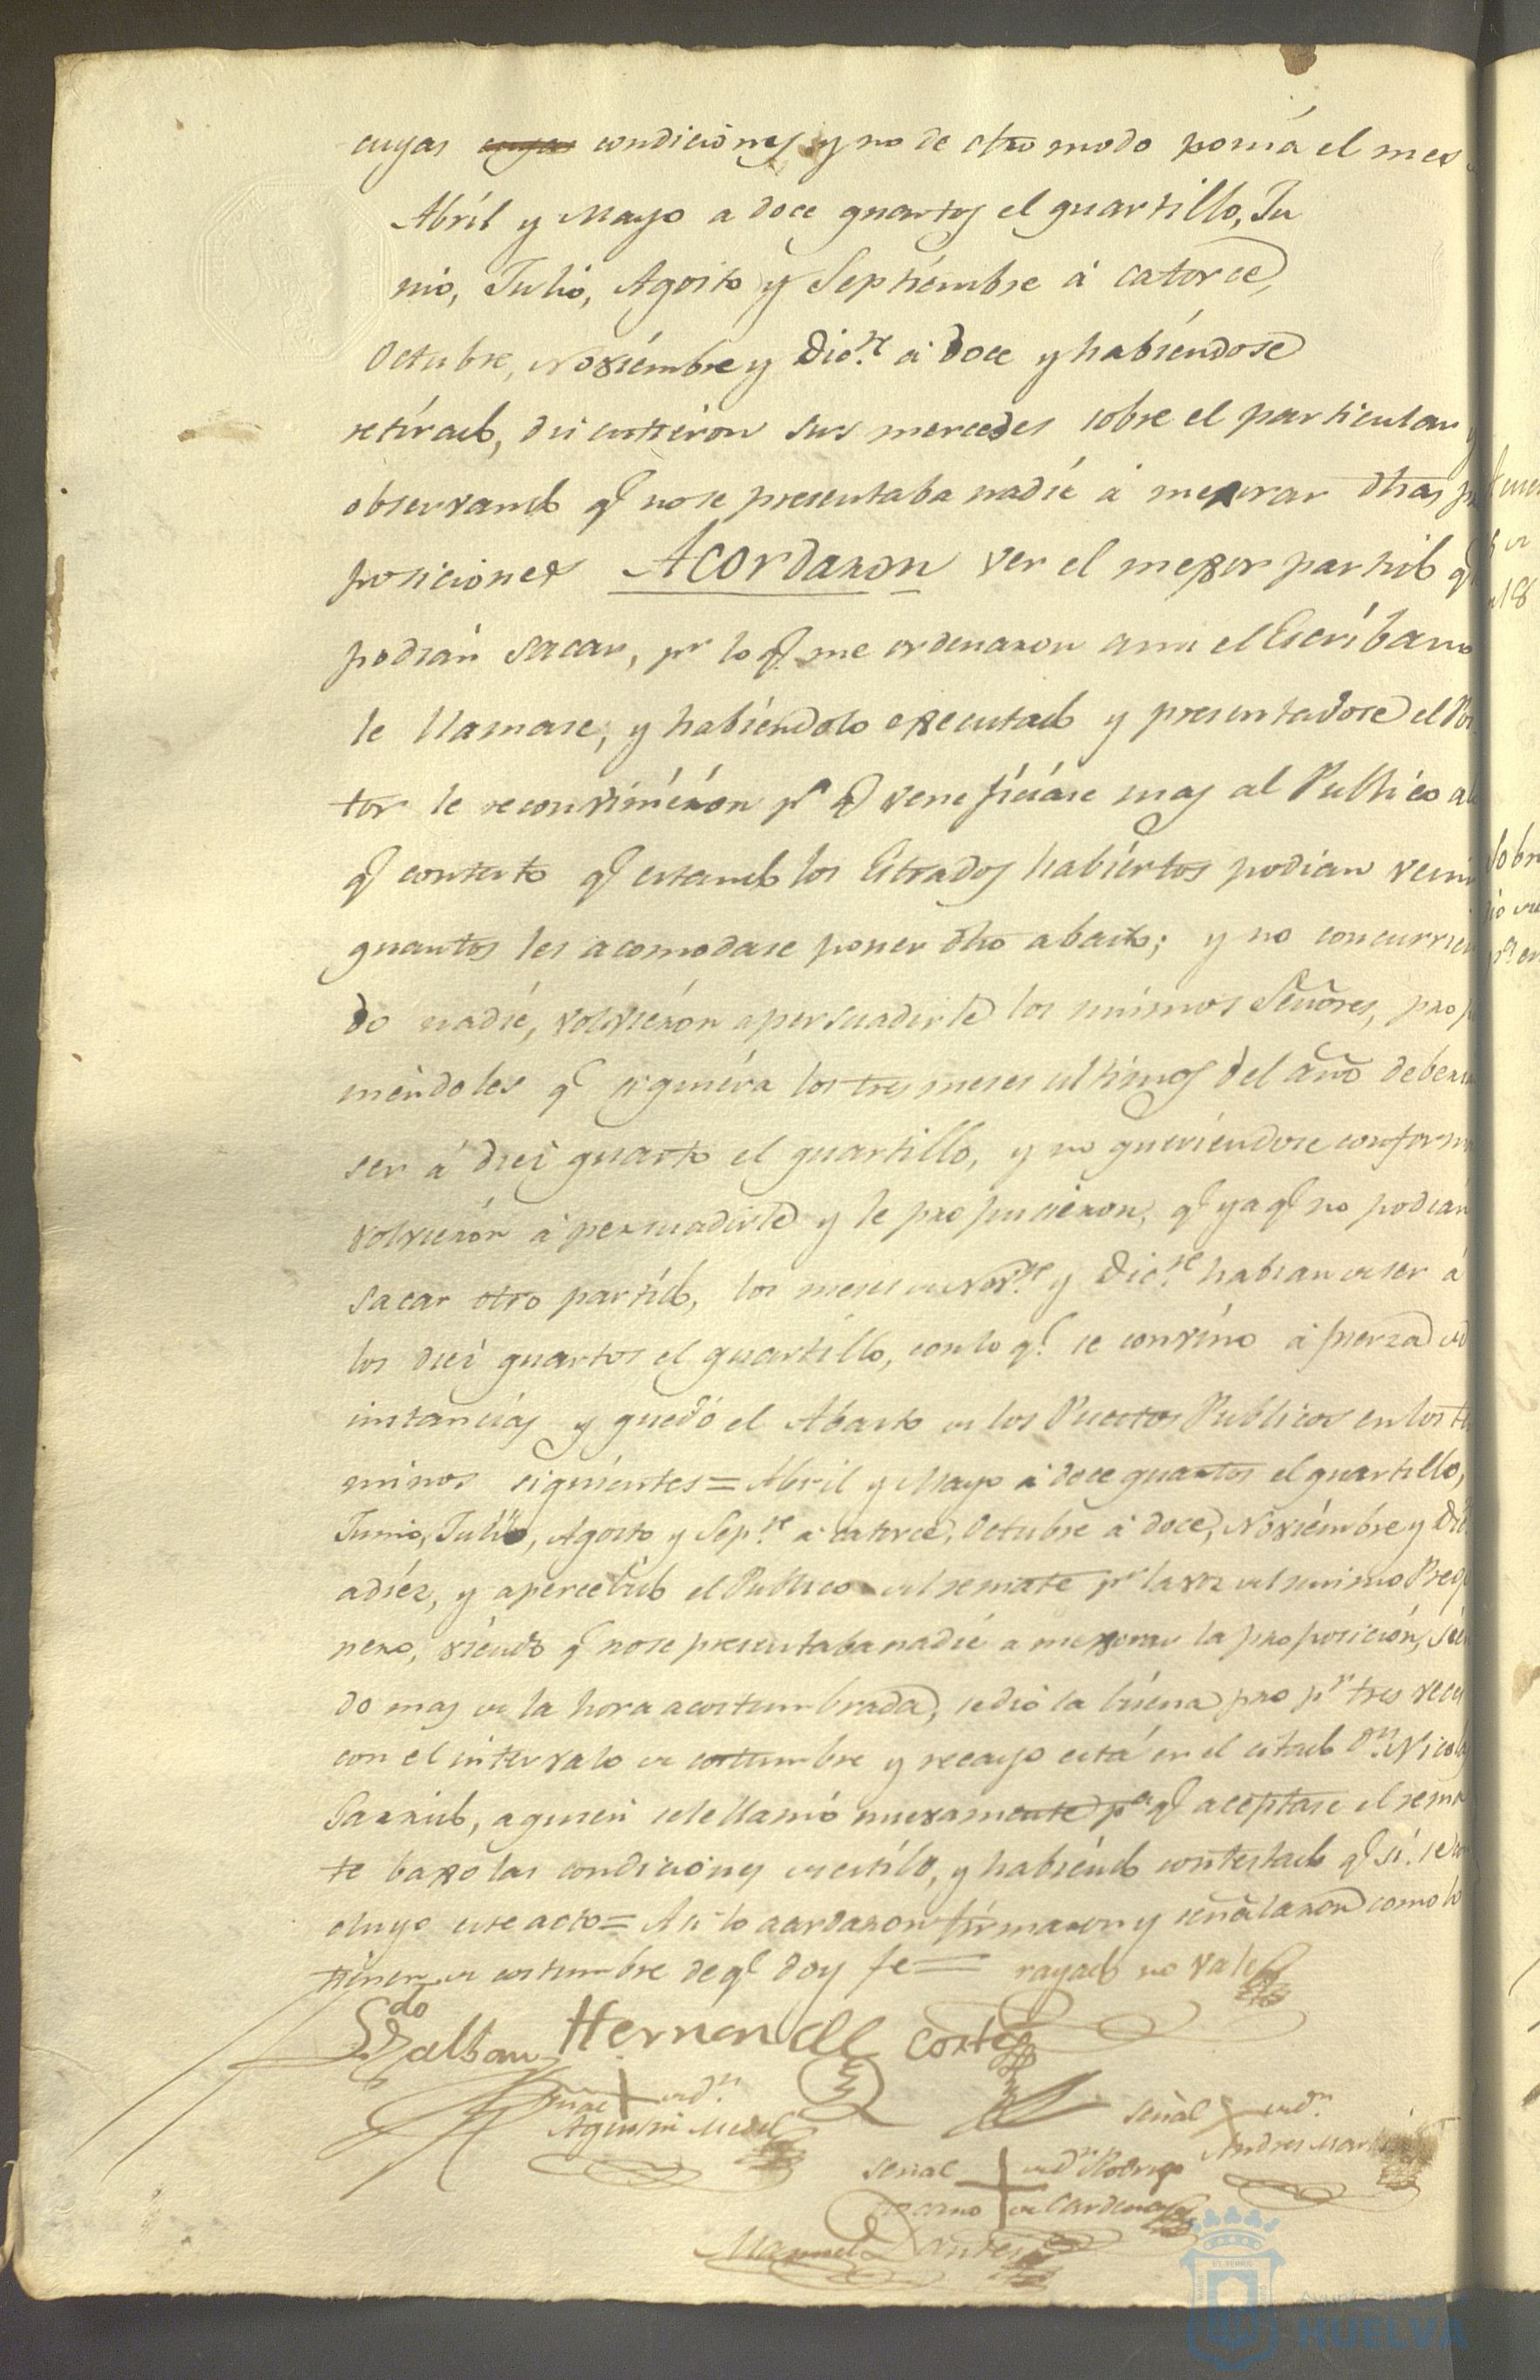 cuyas cuyas condiciones y no de otro modo ponia el mes
Abril y Mayo a doce quartos el quartillo, Ju
nio, Julio, Agosto y Septiembre á catorce,
Octubre, Noviembre y Dic.re á doce y habiendose
retirado, discutieron sus mercedes sobre el particular y
observando q.e no se presentaba nadie á mexorar dhas
posiciones Acordaron ver el mexor partido q.e
podian sacar, pr lo q.e me ordenaron a mi el Escribano
le llamase, y habiendolo executado y presentadose el Pos
tor le reconvinieron pa q.e veneficiase mas al Publico a lo
q.e contexto q.e estando los Estrados habiertos podian venir
quantos les acomodase poner dho abasto; y no concurrien
do nadie, volvieron a persuadirle los mismos Señores, propo
niendoles q.e siquiera los tres meses ultimos del año deberian
ser á diez quartos el quartillo, y no queriendose conformar
volvieron á persuadirle y le propusieron, q.e ya q.e no podian
sacar otro partido, los meses de Nov.re y Dic.re habian de ser á
los diez quartos el quartillo, con lo q.e se convino á fuerza de
instancias y quedó el Abasto de los Puestos Publicos en los ter
minos siguientes = Abril y Mayo á doce quartos el quartillo,
Junio, Julio, Agosto y Sep.re á catorce, Octubre á doce, Noviembre y Dic.
a diez, y apercebido el Publico del remate pr la voz del mismo Prego
nero, viendo q.e no se presentaba nadie a mexorar la proposicion, sien
do mas de la hora acostumbrada, se dió la buena pro pr tres veces
con el intervalo de costumbre y recayo esta en el citado Dn Nicolas
Garrido, a quien se le llamó nuevamente pa q.e aceptase el rema
te baxo las condiciones de estilo, y habiendo contestado q.e si, se con
cluyo este acto = Asi lo acordaron firmaron y señalaron como lo
tienen de costumbre de q.e doy fe = rayado no vale
Ldo Galban Hernandez Cortes
Señal de Dn
Agustin Medel
señal de Dn
Andres Mar
señal de Dn Rodrigo
de Cardenas
Manuel
Ayuntamiento de
HUELVA